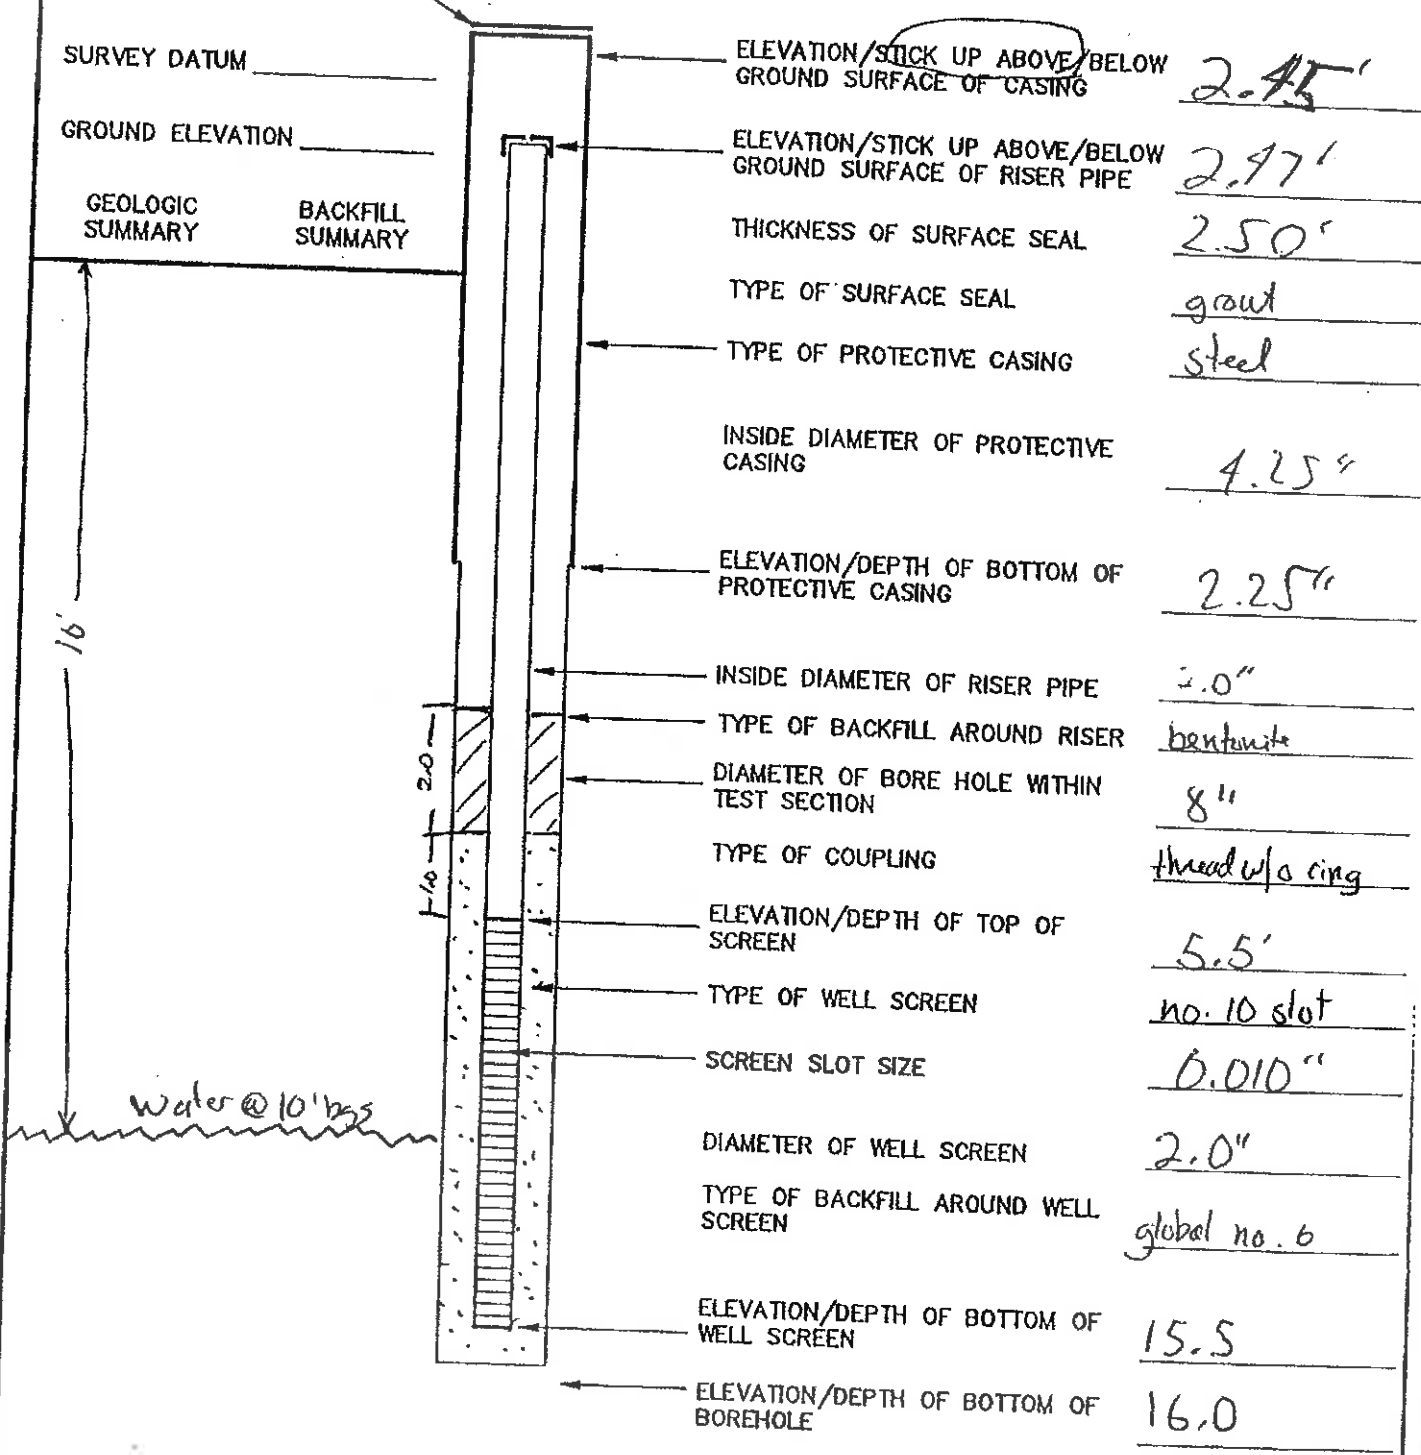 SURVEY DATUM
GROUND ELEVATION
GEOLOGIC SUMMARY
BACKFILL SUMMARY
ELEVATION/STICK UP ABOVE/BELOW
GROUND SURFACE OF CASING
ELEVATION/STICK UP ABOVE/BELOW
GROUND SURFACE OF RISER PIPE 2.47'
THICKNESS OF SURFACE SEAL 2.50'
TYPE OF SURFACE SEAL grout
TYPE OF PROTECTIVE CASING steel
INSIDE DIAMETER OF PROTECTIVE
CASING 4.25"
ELEVATION/DEPTH OF BOTTOM OF
PROTECTIVE CASING 2.25"
16'
INSIDE DIAMETER OF RISER PIPE
TYPE OF BACKFILL AROUND RISER bentonite
2.0
DIAMETER OF BORE HOLE WITHIN
TEST SECTION 8"
TYPE OF COUPLING thread w/o ring
1.0
ELEVATION/DEPTH OF TOP OF
SCREEN 5.5'
TYPE OF WELL SCREEN no. 10 slot
SCREEN SLOT SIZE 0.010"
Water @ 10' bgs
DIAMETER OF WELL SCREEN 2.0"
TYPE OF BACKFILL AROUND WELL
SCREEN global no. 6
ELEVATION/DEPTH OF BOTTOM OF
WELL SCREEN 15.5
ELEVATION/DEPTH OF BOTTOM OF
BOREHOLE 16.0